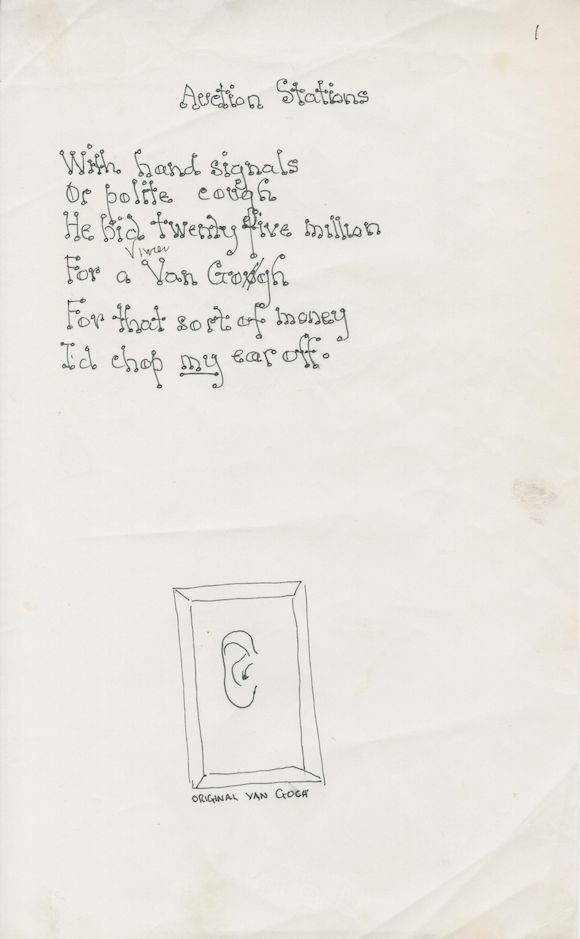 1
Auction Stations
With hand signals
Or polite cough
He bid twenty five million
For a Van Gogh
For that sort of money
I'd chop my ear off.
ORIGINAL VAN GOGH